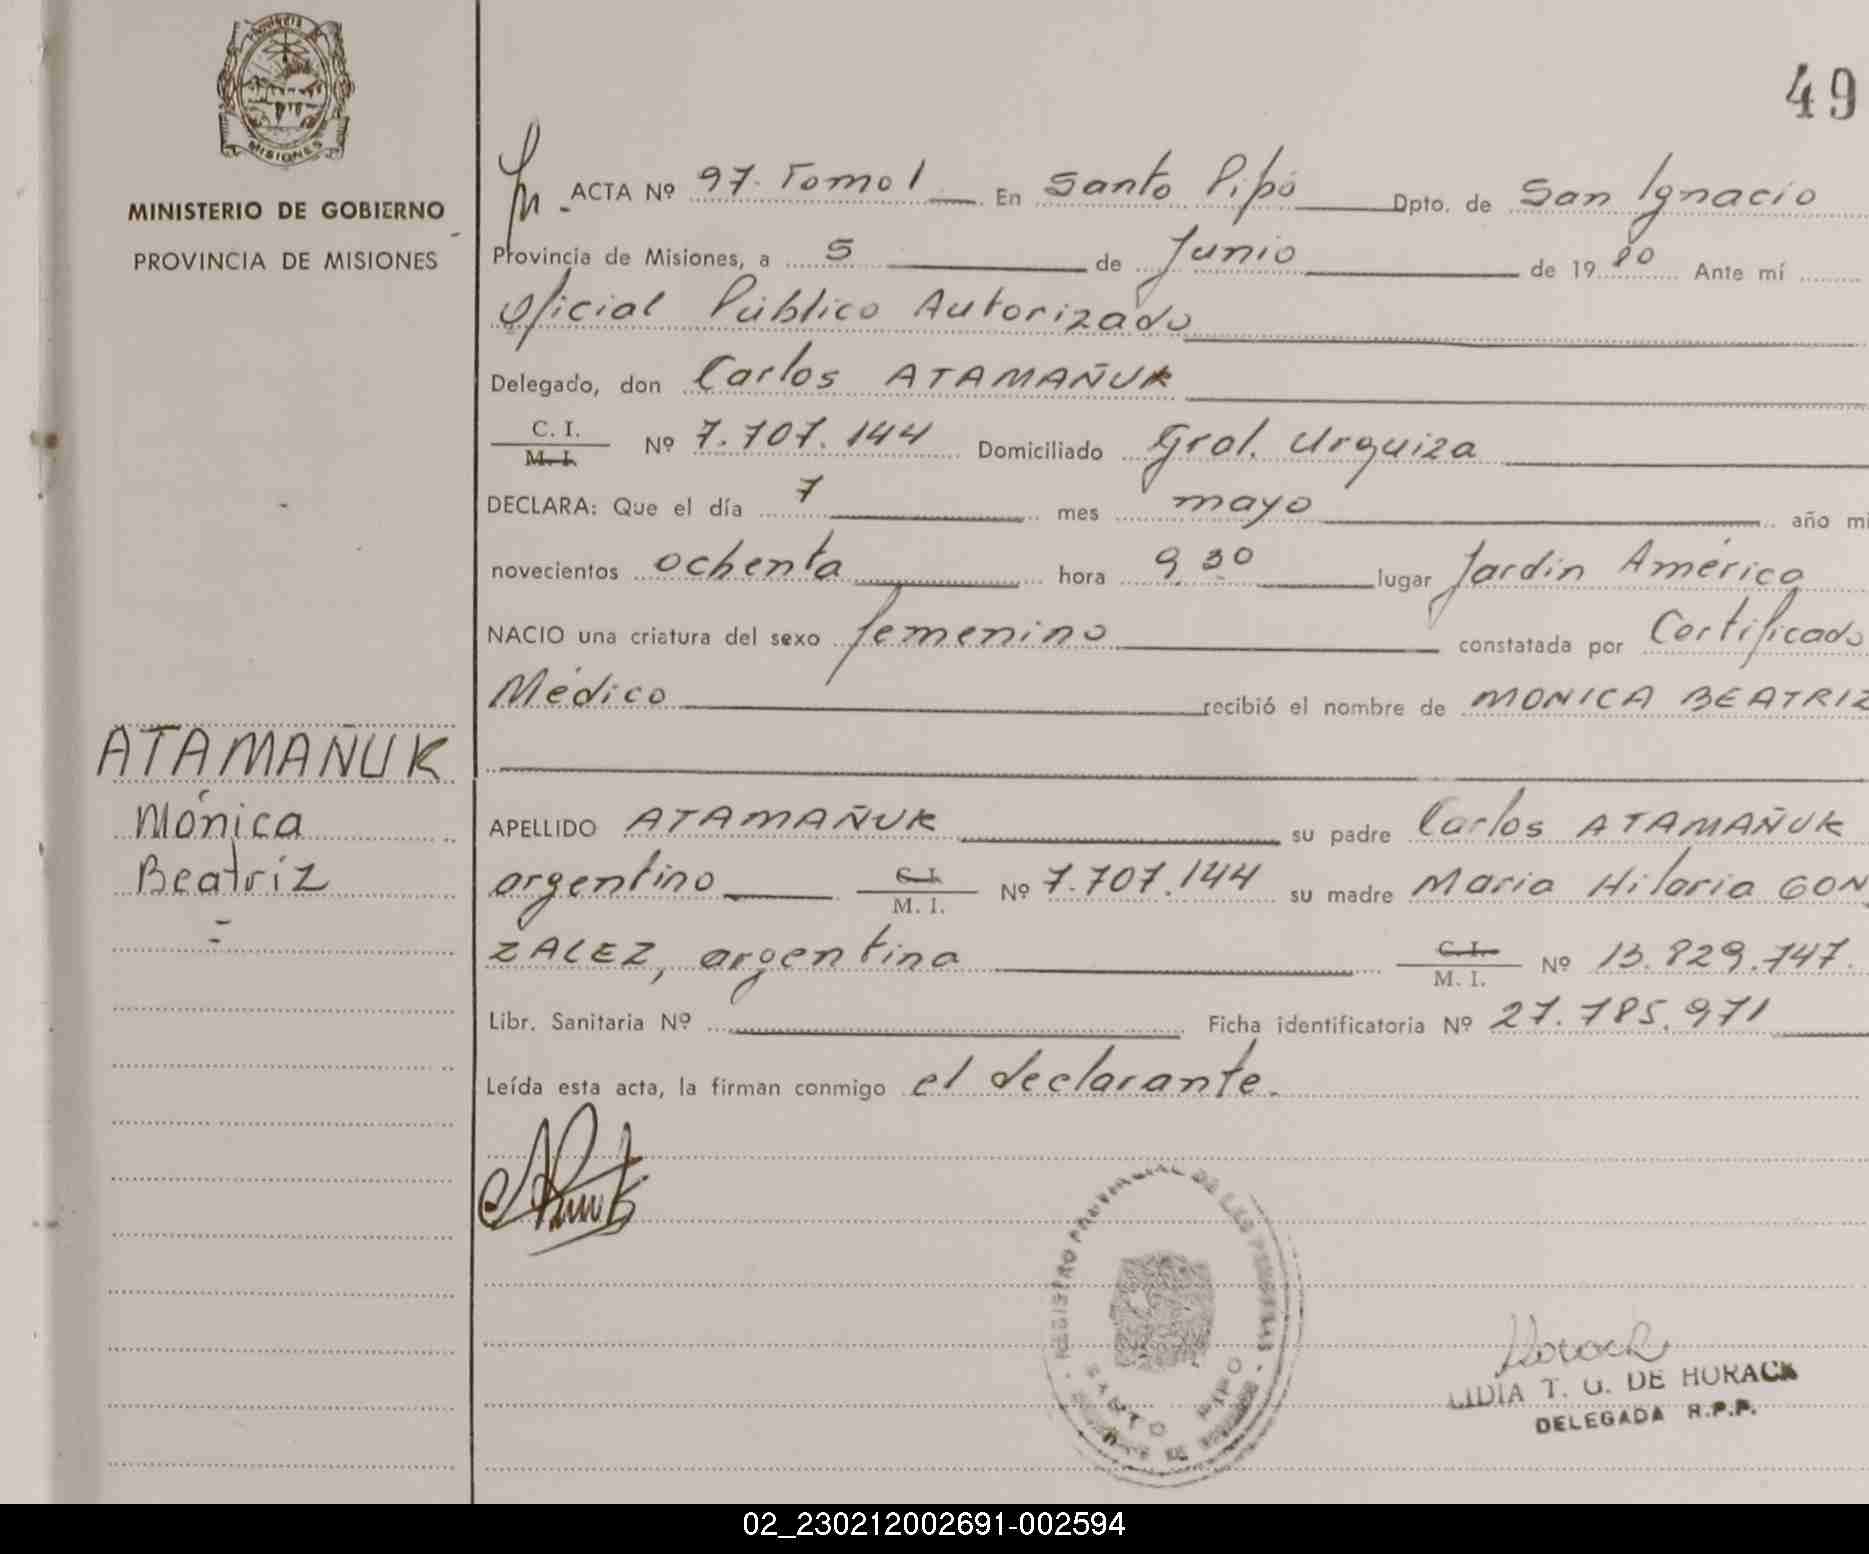 PROVINCIA
MISIONES
MINISTERIO DE GOBIERNO
PROVINCIA DE MISIONES
49
ACTA Nº 97. Tomo I En Santo Pipó Dpto. de San Ignacio
Provincia de Misiones, a 5 de Junio de 1980 Ante mí
Oficial Público Autorizado
Delegado, don Carlos ATAMAÑUK
C. I.
M. I. Nº 7.707.144 Domiciliado Gral. Urquiza
DECLARA: Que el día 7 mes mayo año mi
novecientos ochenta hora 9,30 lugar Jardín América
NACIO una criatura del sexo femenino constatada por Certificado
Médico recibió el nombre de MONICA BEATRIZ
ATAMAÑUK
Mónica
Beatríz
APELLIDO ATAMAÑUK su padre Carlos ATAMAÑUK
argentino C. I.
M. I. Nº 7.707.144 su madre Maria Hilaria GON
ZALEZ, argentina C. I.
M. I. Nº 13.829.747.
Libr. Sanitaria Nº Ficha identificatoria Nº 27.785.971
Leída esta acta, la firman conmigo el declarante.
REGISTRO PROVINCIAL DE LAS PERSONAS
SANTO PIPO
LIDIA T. G. DE HORACK
DELEGADA R.P.P.
02_230212002691-002594